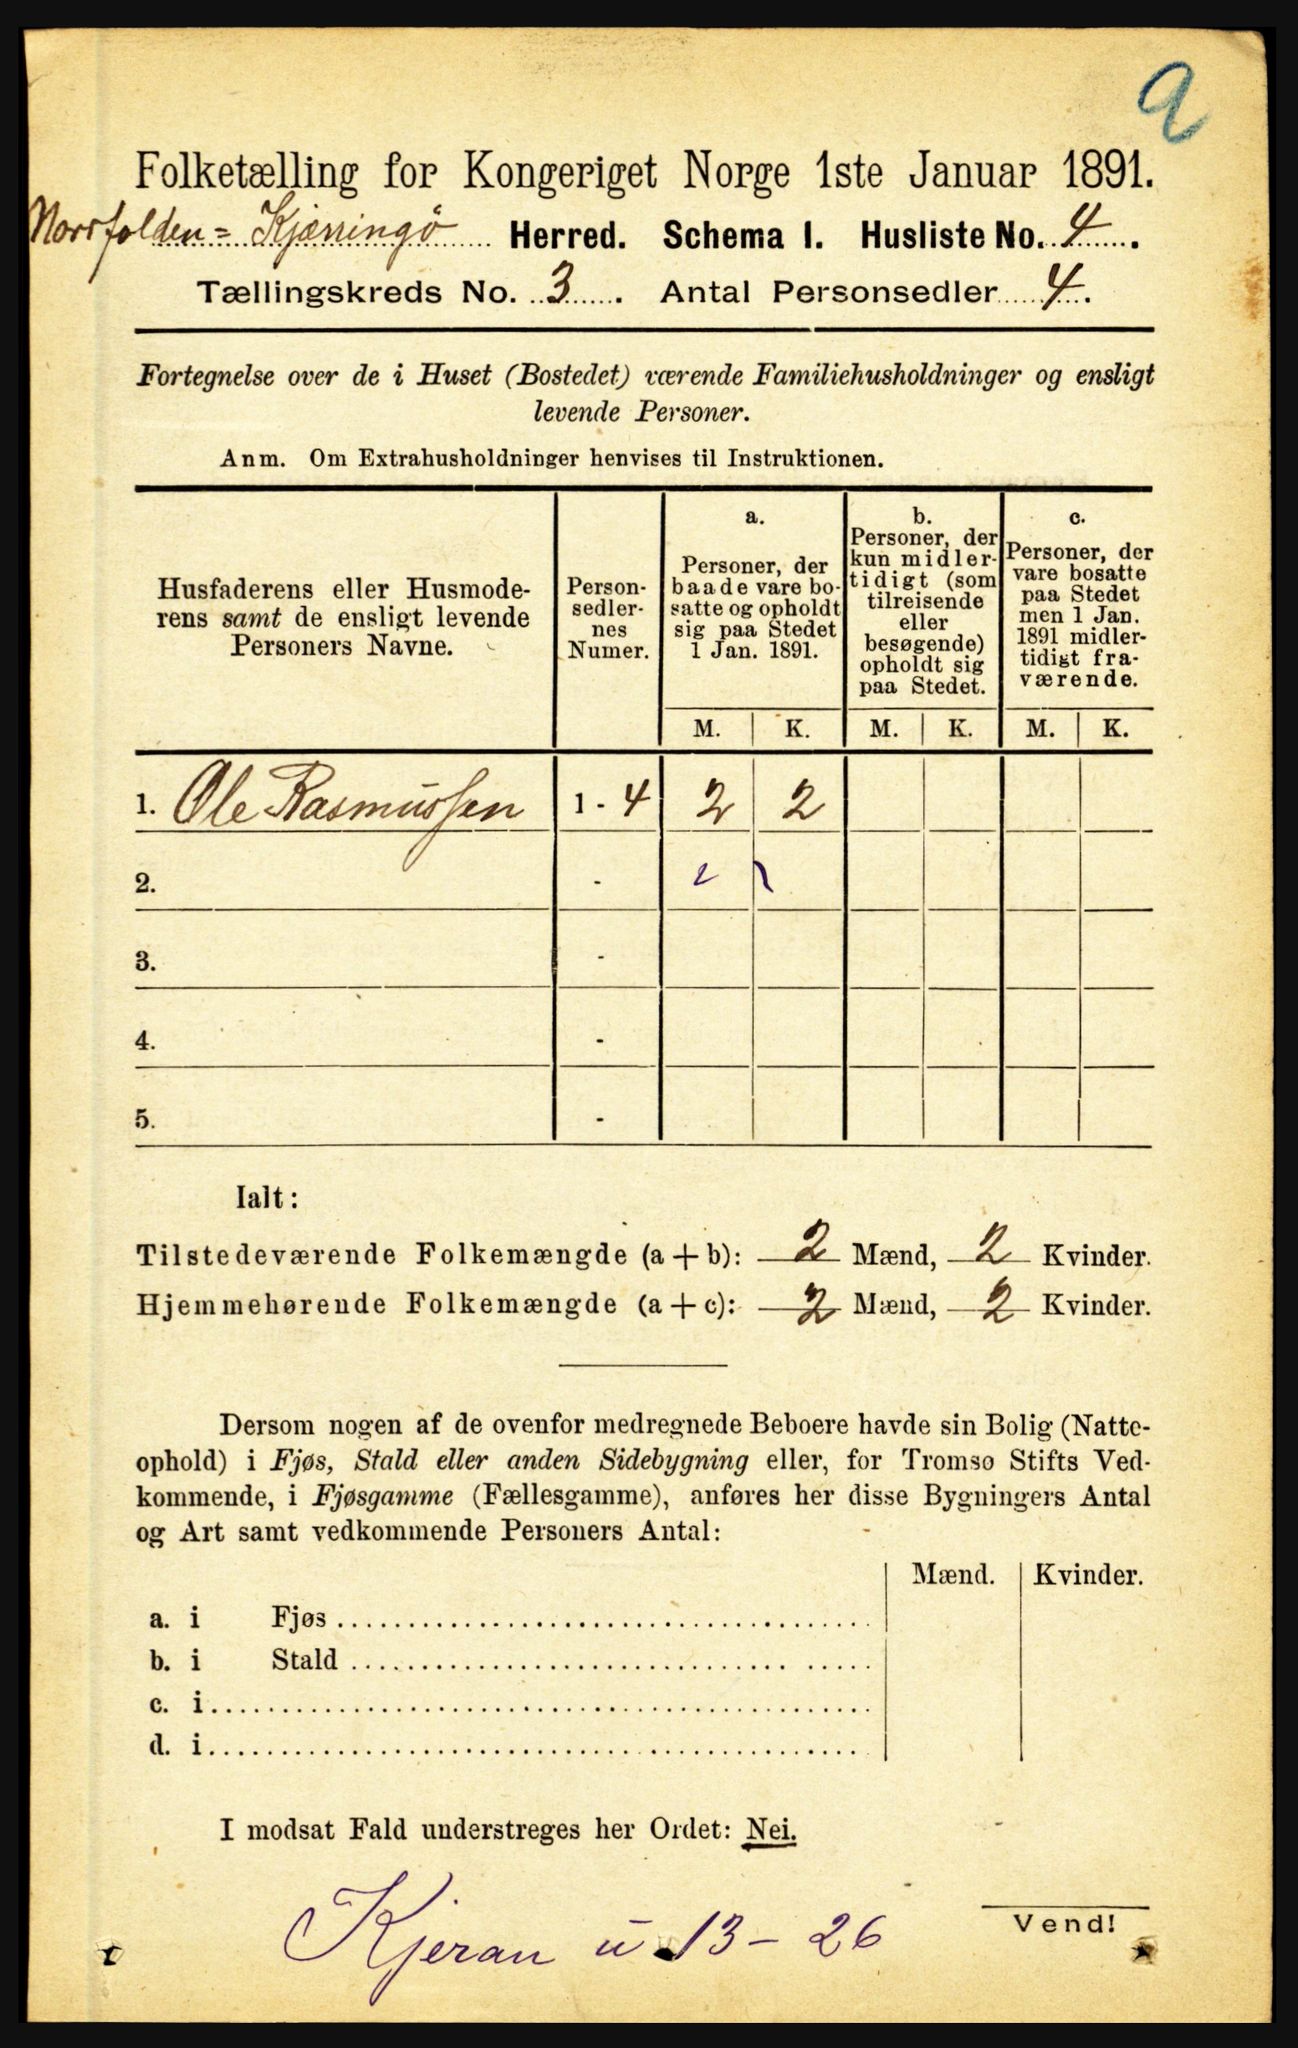 a
Folketælling for Kongeriget Norge 1ste Januar 1891.
Norrfolden=Kjærringø Herred. Schema I. Husliste No. 4.
Tællingskreds No. 3. Antal Personsedler 4.
Fortegnelse over de i Huset (Bostedet) værende Familiehusholdninger og ensligt
levende Personer.
Anm. Om Extrahusholdninger henvises til Instruktionen.
Husfaderens eller Husmode-
rens samt de ensligt levende
Personers Navne.
Person-
sedler-
nes
Numer.
a.
Personer, der
baade vare bo-
satte og opholdt
sig paa Stedet
1 Jan. 1891.
b.
Personer, der
kun midler-
tidigt (som
tilreisende
eller
besøgende)
opholdt sig
paa Stedet.
c.
Personer, der
vare bosatte
paa Stedet
men 1 Jan.
1891 midler-
tidigt fra-
værende.
M. K. M. K. M. K.
1. Ole Rasmussen 1 - 4 2 2
2. -
3. -
4. -
5. -
Ialt:
Tilstedeværende Folkemængde (a + b): 2 Mænd, 2 Kvinder.
Hjemmehørende Folkemængde (a + c): 2 Mænd, 2 Kvinder.
Dersom nogen af de ovenfor medregnede Beboere havde sin Bolig (Natte-
ophold) i Fjøs, Stald eller anden Sidebygning eller, for Tromsø Stifts Ved-
kommende, i Fjøsgamme (Fællesgamme), anføres her disse Bygningers Antal
og Art samt vedkommende Personers Antal:
Mænd. Kvinder.
a. i Fjøs
b. i Stald
c. i
d. i
I modsat Fald understreges her Ordet: Nei.
Kjeran u 13 - 26
Vend!